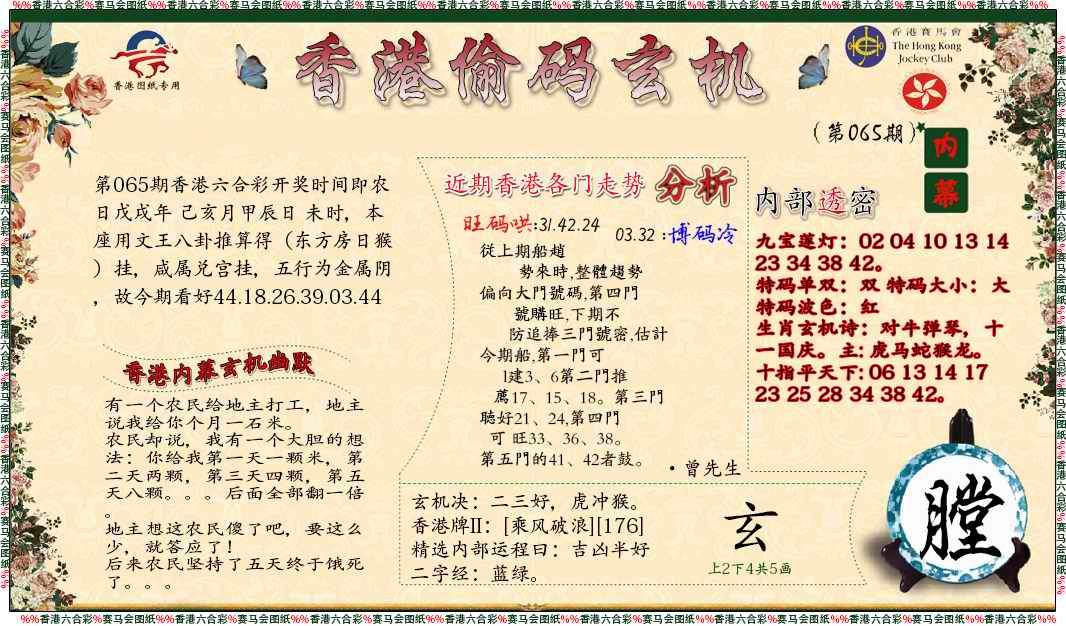 %%香港六合彩%赛马会图纸%%香港六合彩%赛马会图纸%%香港六合彩%赛马会图纸%%香港六合彩%赛马会图纸%%香港六合彩%赛马会图纸%%香港六合彩%赛马会图纸%%香港六合彩%%
香港图纸专用
香港偷码玄机
香港賽馬會
The Hong Kong
Jockey Club
(第065期)
内
幕
第065期香港六合彩开奖时间即农
日戊戌年 己亥月甲辰日 未时，本
座用文王八卦推算得（东方房日猴
）挂，咸属兑宫挂，五行为金属阴
，故今期看好44.18.26.39.03.44
香港内幕玄机幽默
有一个农民给地主打工，地主
说我给你个月一石米。
农民却说，我有一个大胆的想
法：你给我第一天一颗米，第
二天两颗，第三天四颗，第五
天八颗。。。后面全部翻一倍
。
地主想这农民傻了吧，要这么
少，就答应了！
后来农民坚持了五天终于饿死
了。。。
近期香港各门走势 分析
旺码哄:31.42.24
03.32 :博码冷
從上期船趙
勢來時,整體趨勢
偏向大門號碼,第四門
號購旺,下期不
防追捧三門號密,估計
今期船,第一門可
l建3、6第二門推
薦17、15、18。第三門
聽好21、24,第四門
可 旺33、36、38。
第五門的41、42者鼓。
·曾先生
玄机决：二三好，虎冲猴。
香港牌II：[乘风破浪][176]
精选内部运程曰：吉凶半好
二字经：蓝绿。
玄
上2下4共5画
内部透密
九宝莲灯：02 04 10 13 14
23 34 38 42。
特码单双：双 特码大小：大
特码波色：红
生肖玄机诗：对牛弹琴，十
一国庆。主: 虎马蛇猴龙。
十指平天下: 06 13 14 17
23 25 28 34 38 42。
膛
%%香港六合彩%赛马会图纸%%香港六合彩%赛马会图纸%%香港六合彩%赛马会图纸%%香港六合彩%赛马会图纸%%香港六合彩%赛马会图纸%%香港六合彩%赛马会图纸%%香港六合彩%%